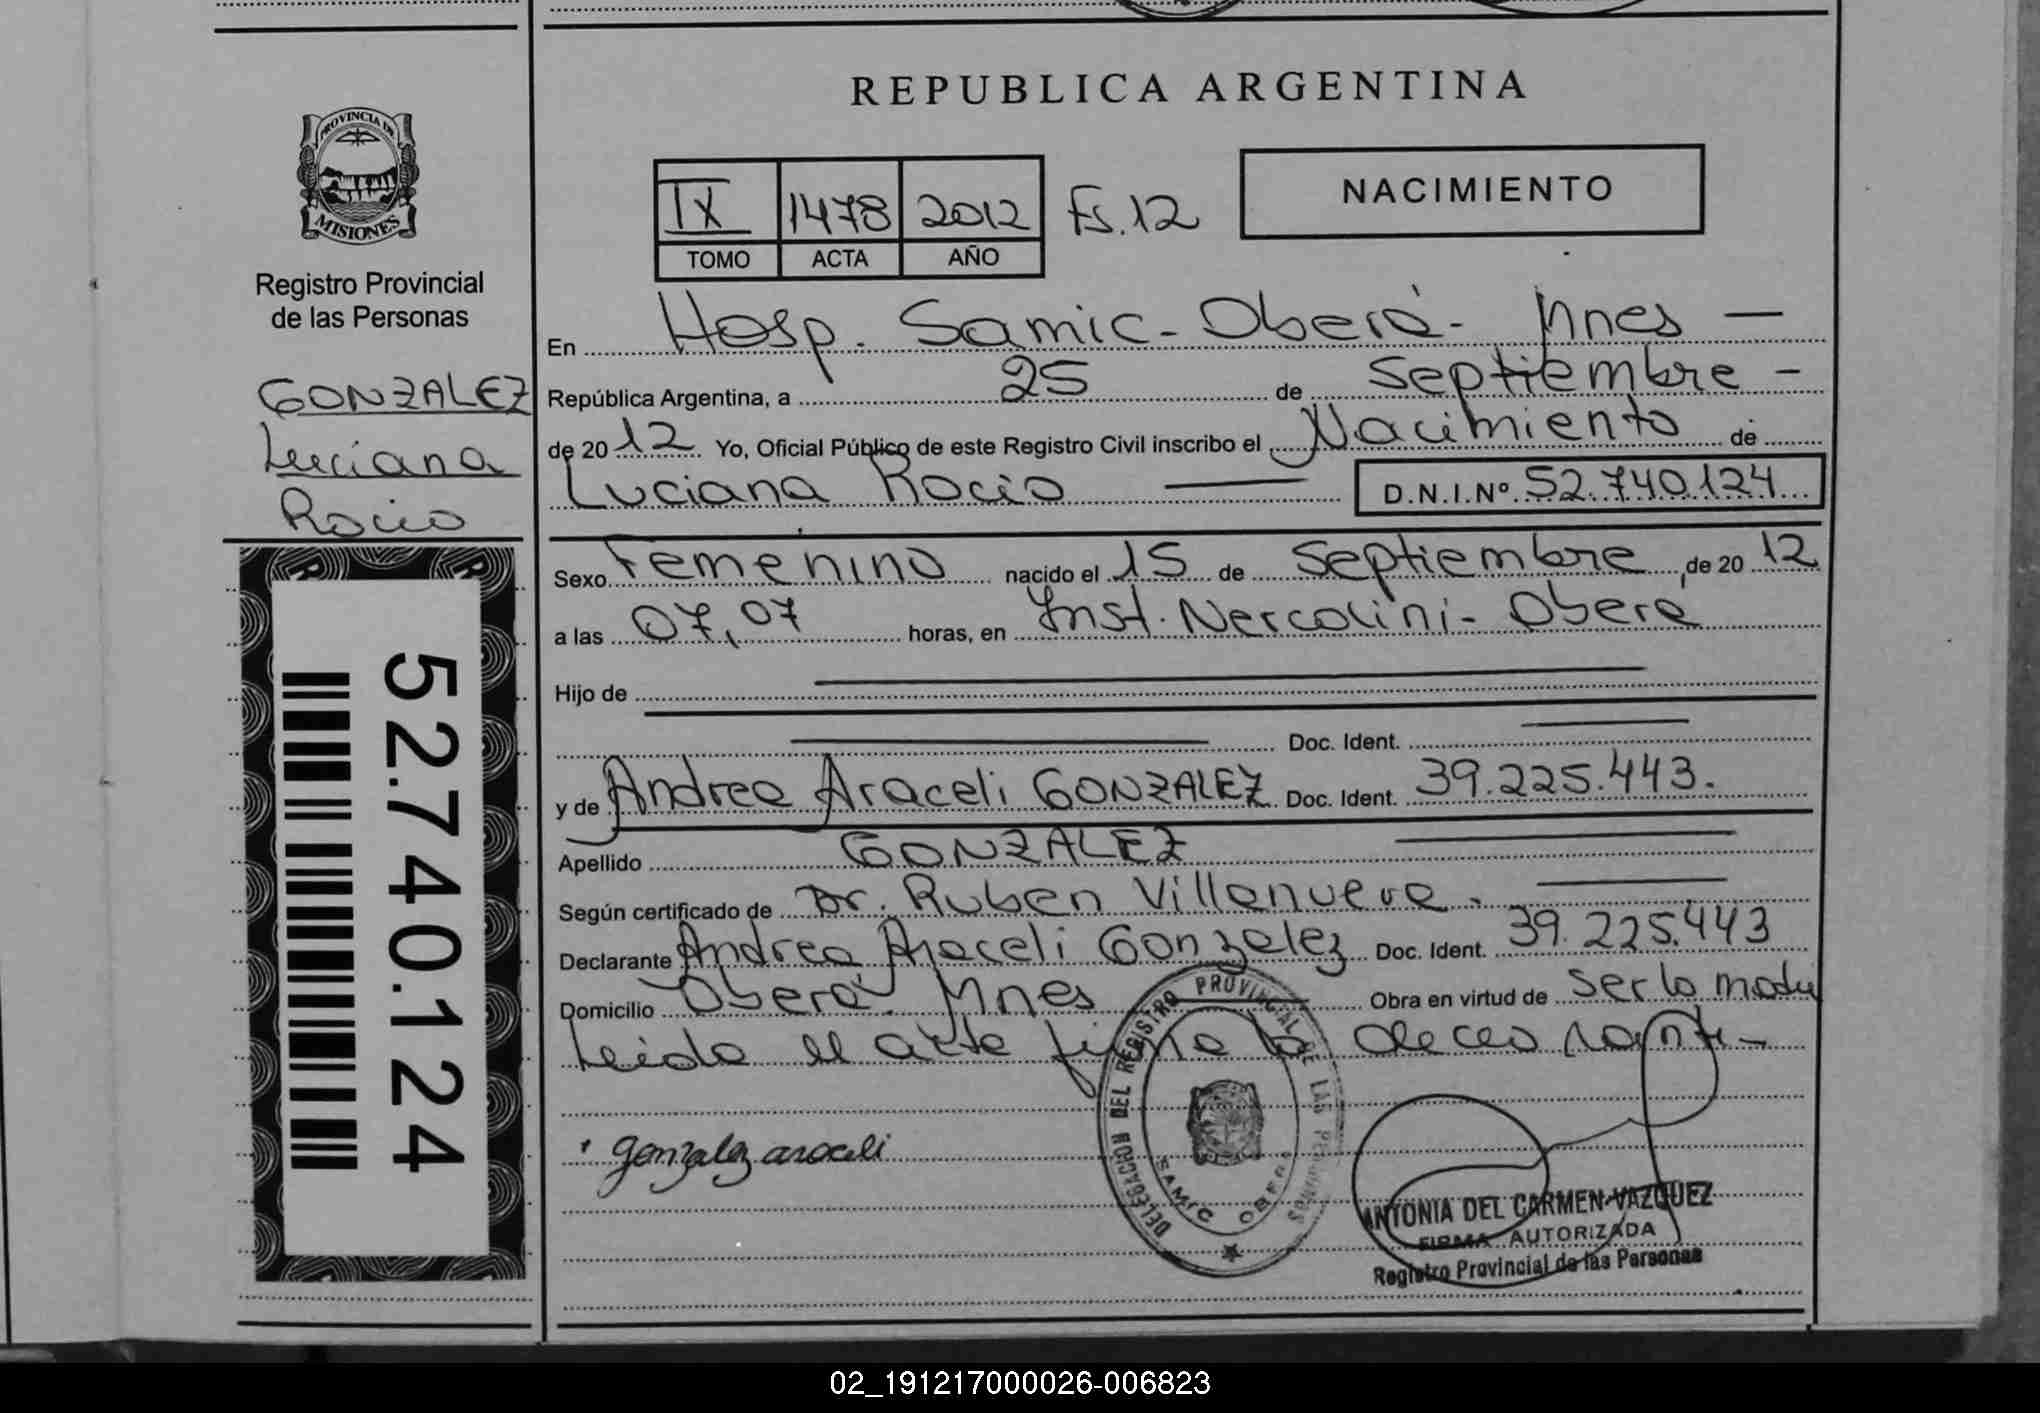 PROVINCIA DE
MISIONES
Registro Provincial
de las Personas
GONZALEZ
Luciana
Rocio
52.740.124
REPUBLICA ARGENTINA
IX 1478 2012 Fs.12
TOMO ACTA AÑO
NACIMIENTO
En Hosp. Samic - Oberá - Mnes —
República Argentina, a 25 de Septiembre -
de 20 12 Yo, Oficial Público de este Registro Civil inscribo el Nacimiento de
Luciana Rocio — D.N.I.Nº 52.740.124
Sexo Femenino nacido el 15 de Septiembre de 20 12
a las 07,07 horas, en Inst. Nercolini - Obera
Hijo de
Doc. Ident.
y de Andrea Araceli GONZALEZ Doc. Ident. 39.225.443.
Apellido GONZALEZ
Según certificado de Dr. Ruben Villanueva.
Declarante Andrea Araceli Gonzalez Doc. Ident. 39.225.443
Domicilio Oberá. Mnes Obra en virtud de ser la madre
Leida el acta firma la
gonzalez araceli
DELEGACION DEL REGISTRO PROVINCIAL DE LAS PERSONAS
SAMIC OBERA
ANTONIA DEL CARMEN VAZQUEZ
FIRMA AUTORIZADA
Registro Provincial de las Personas
02_191217000026-006823